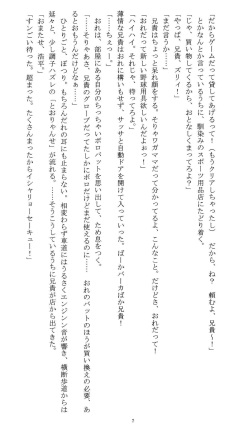 「だからゲームだって貸してあげるって！（もうクリアしちゃったし）　だから、ね？　頼むよ、兄貴〜！」
とかなんとか言っているうちに、馴染みのスポーツ用品店にたどり着く。
「じゃ、買い物してくるから、おとなしくまってろよ？」
「やっぱ、兄貴、ズリィー！」
「まだ言うか……」
兄貴はちょっと呆れ顔をする。そりゃワガママだって分かってるよ、こんなこと。だけどさ、おれだって！
「おれだって新しい野球用具欲しいんだよぉっ！」
「ハイハイ、それじゃ、待ってろよ」
薄情な兄貴はおれに構いもせず、サッサと自動ドアを開けて入っていった。ばーかバーカばか兄貴！
「……ちぇっ……」
おれは、部屋にある自分のちっちゃいボロバットを思い出して、ため息をつく。
「……そりゃあさ、兄貴のグローブだってたしかにボロだけどまだ使えるのに……　おれのバットのほうが買い換えの必要、あるとおもうんだけどなぁ……」
ひとりごと、ぽつり。もちろんだれの耳にも止まらない。相変わらず車道にはうるさくエンジンン音が響き、横断歩道からは延々と、少し調子ハズレの「とおりゃんせ」が流れる。……そうこうしているうちに兄貴が店から出てきた。
「おまたせ、浩平」
「すっごい待った。超まった。たくさんまったからイシャリョーセーキュー！」
7